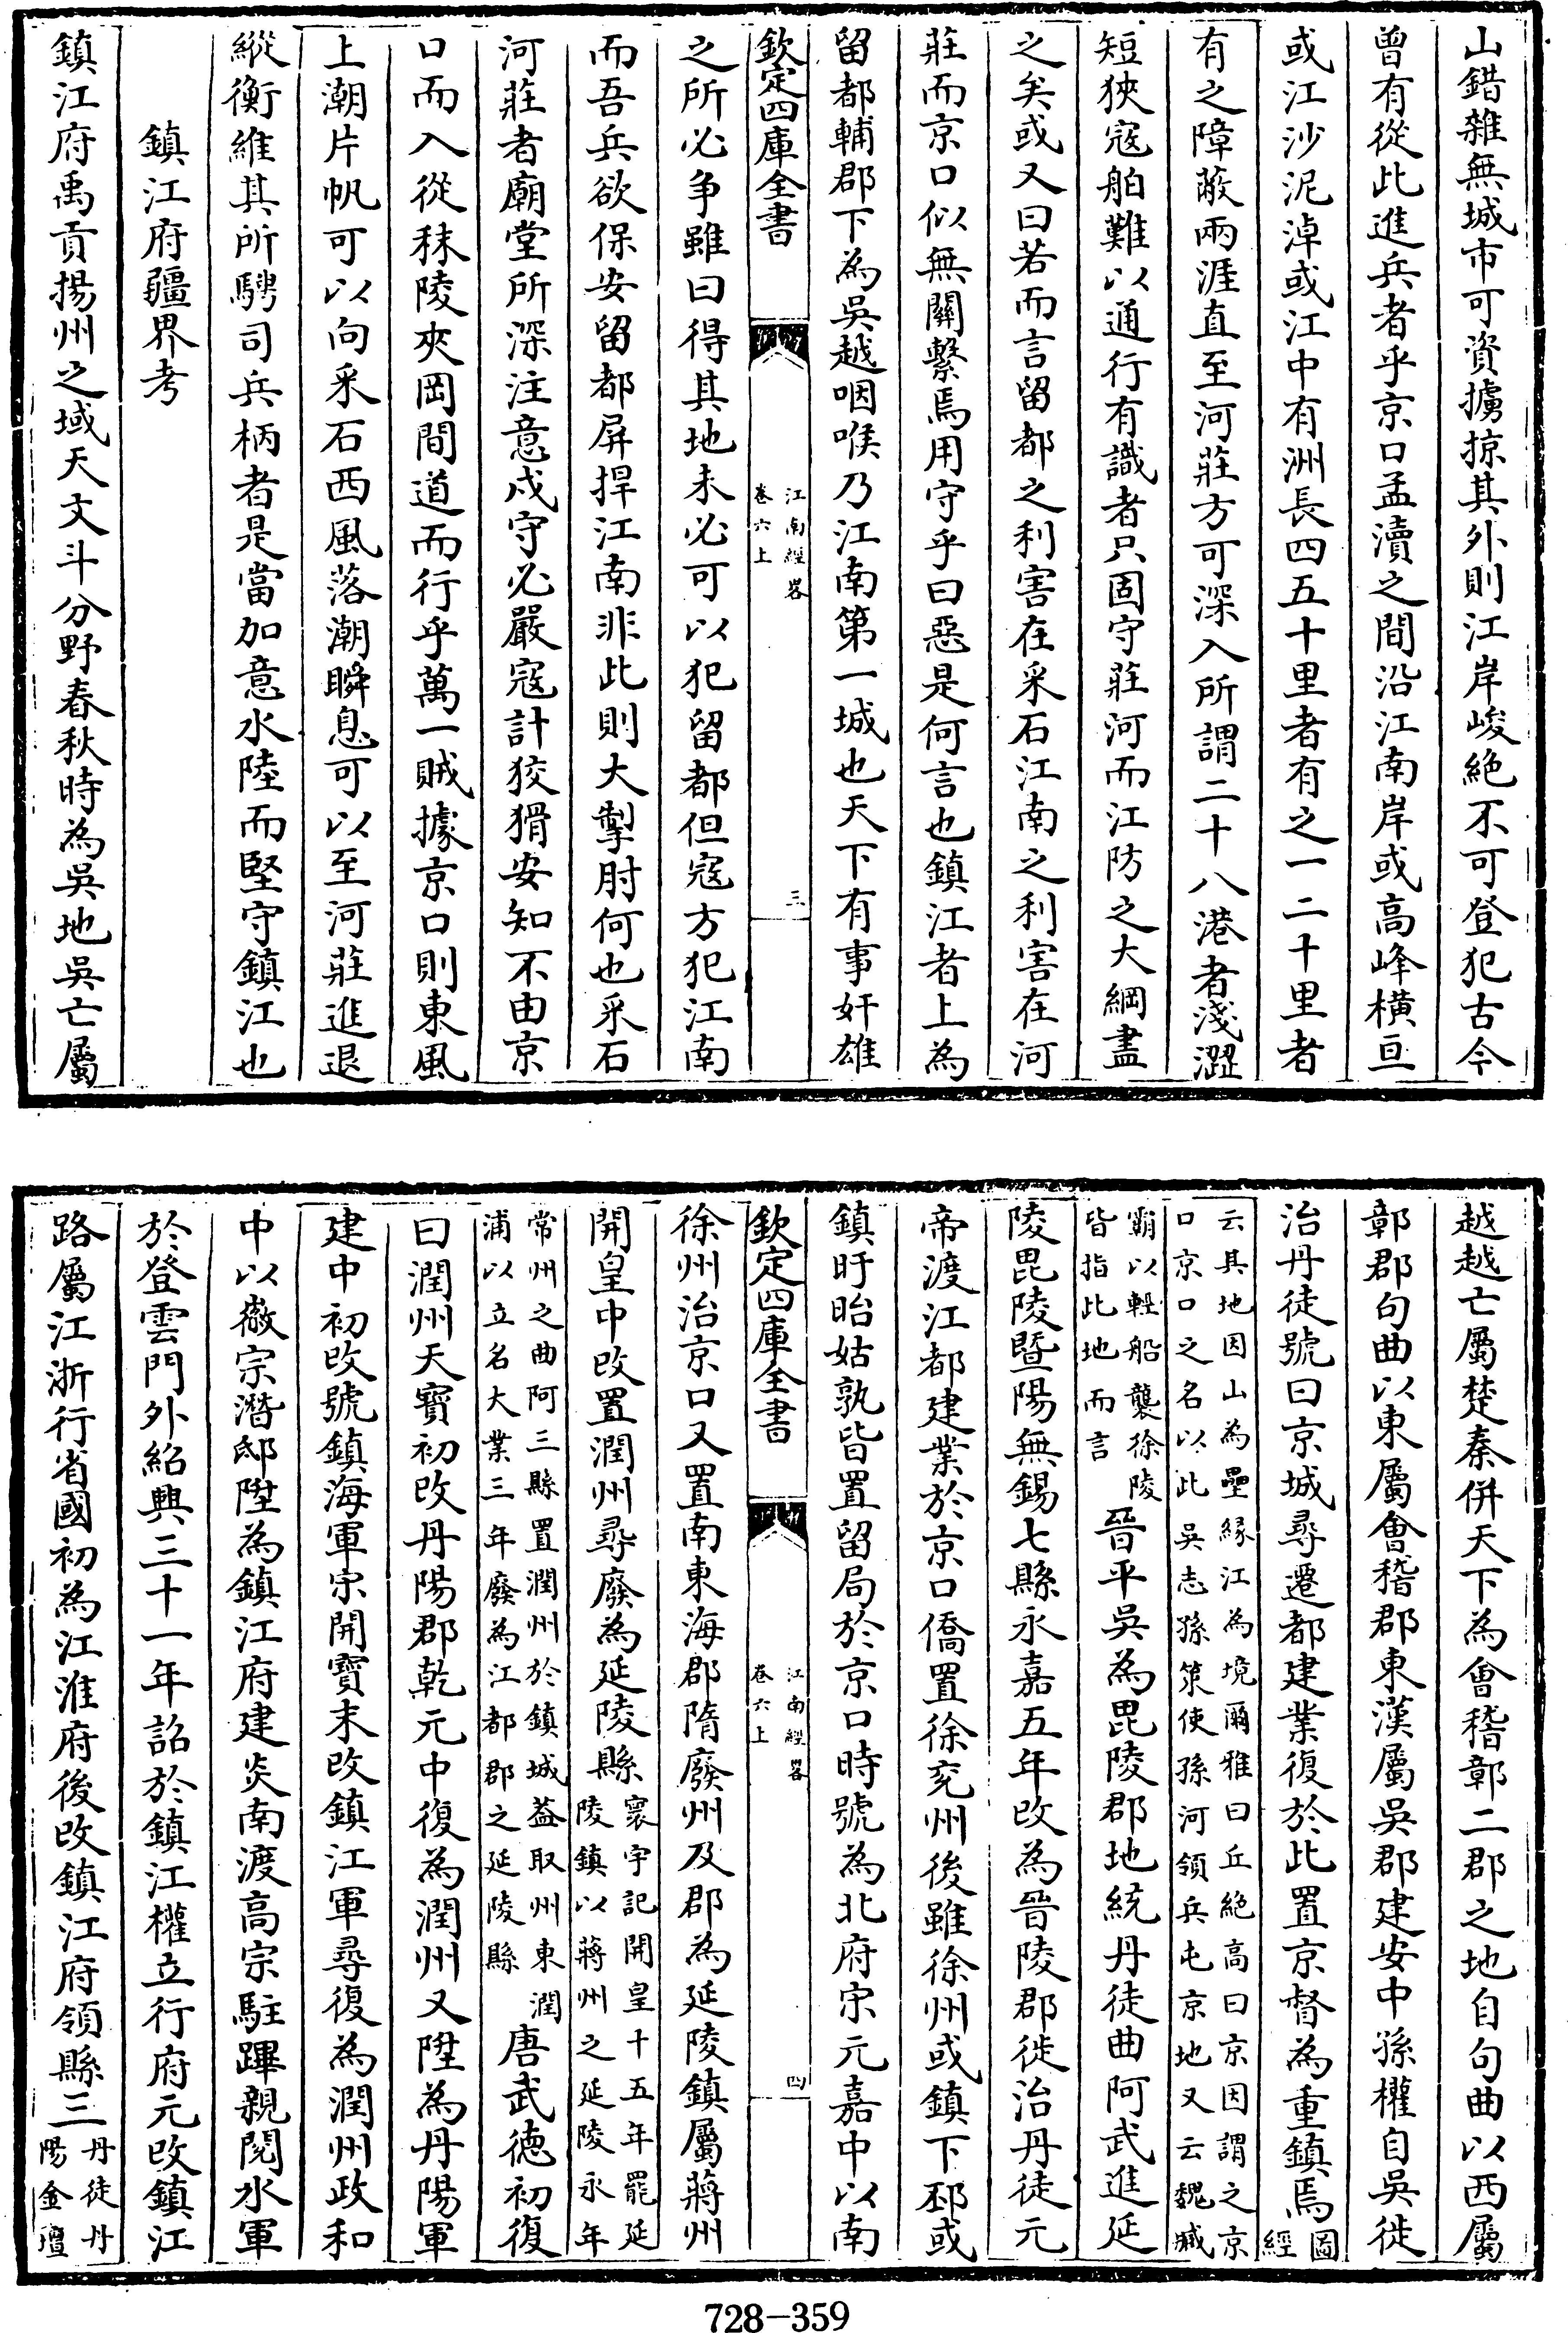 山錯雜無城市可資擄掠其外則江岸峻絶不可登犯古今
曾有從此進兵者乎京口孟瀆之間沿江南岸或高峰横亘
或江沙泥淖或江中有洲長四五十里者有之一二十里者
有之障蔽兩涯直至河莊方可深入所謂二十八港者淺澀
短狹寇舶難以通行有識者只固守莊河而江防之大綱盡
之矣或又曰若而言留都之利害在采石江南之利害在河
莊而京口似無關繫焉用守乎曰惡是何言也鎮江者上為
留都輔郡下為吳越咽喉乃江南第一城也天下有事奸雄
欽定四庫全書
江南經畧
卷六上
三
之所必争雖曰得其地未必可以犯留都但寇方犯江南
而吾兵欲保安留都屏捍江南非此則大掣肘何也采石
河莊者廟堂所深注意戍守必嚴寇計狡猾安知不由京
口而入從秣陵夾岡間道而行乎萬一賊據京口則東風
上潮片帆可以向采石西風落潮瞬息可以至河莊進退
縱衡維其所騁司兵柄者是當加意水陸而堅守鎮江也
鎮江府疆界考
鎮江府禹貢揚州之域天文斗分野春秋時為吳地吳亡屬
越越亡屬楚秦併天下為會稽鄣二郡之地自句曲以西屬
鄣郡句曲以東屬會稽郡東漢屬吳郡建安中孫權自吳徙
治丹徒號曰京城尋遷都建業復於此置京督為重鎮焉
圖
經
云具地因山為壘緣江為境爾雅曰丘絶高曰京因謂之京
口京口之名以此吳志孫策使孫河領兵屯京地又云魏臧
霸以輕船襲徐陵
皆指此地而言
晉平吳為毘陵郡地統丹徒曲阿武進延
陵毘陵暨陽無錫七縣永嘉五年改為晉陵郡徙治丹徒元
帝渡江都建業於京口僑置徐兖州後雖徐州或鎮下邳或
鎮盱眙姑孰皆置留局於京口時號為北府宋元嘉中以南
欽定四庫全書
江南經畧
卷六上
四
徐州治京口又置南東海郡隋廢州及郡為延陵鎮屬蔣州
開皇中改置潤州尋廢為延陵縣
寰宇記開皇十五年罷延
陵鎮以蔣州之延陵永年
常州之曲阿三縣置潤州於鎮城葢取州東潤
浦以立名大業三年廢為江都郡之延陵縣
唐武德初復
曰潤州天寶初改丹陽郡乾元中復為潤州又陞為丹陽軍
建中初改號鎮海軍宋開寶末改鎮江軍尋復為潤州政和
中以徽宗潛邸陞為鎮江府建炎南渡高宗駐蹕親閲水軍
於登雲門外紹興三十一年詔於鎮江權立行府元改鎮江
路屬江浙行省國初為江淮府後改鎮江府領縣三
丹徒丹
陽金壇
728—359